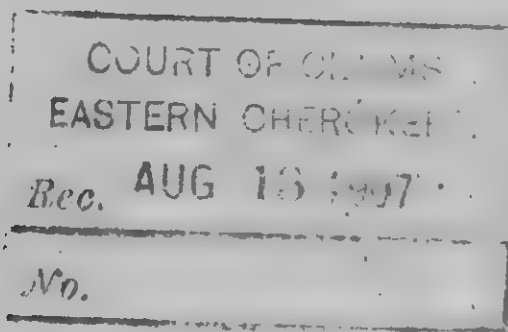 COURT OF CLAIMS
EASTERN CHEROKEE
Rec. AUG 1907
No.